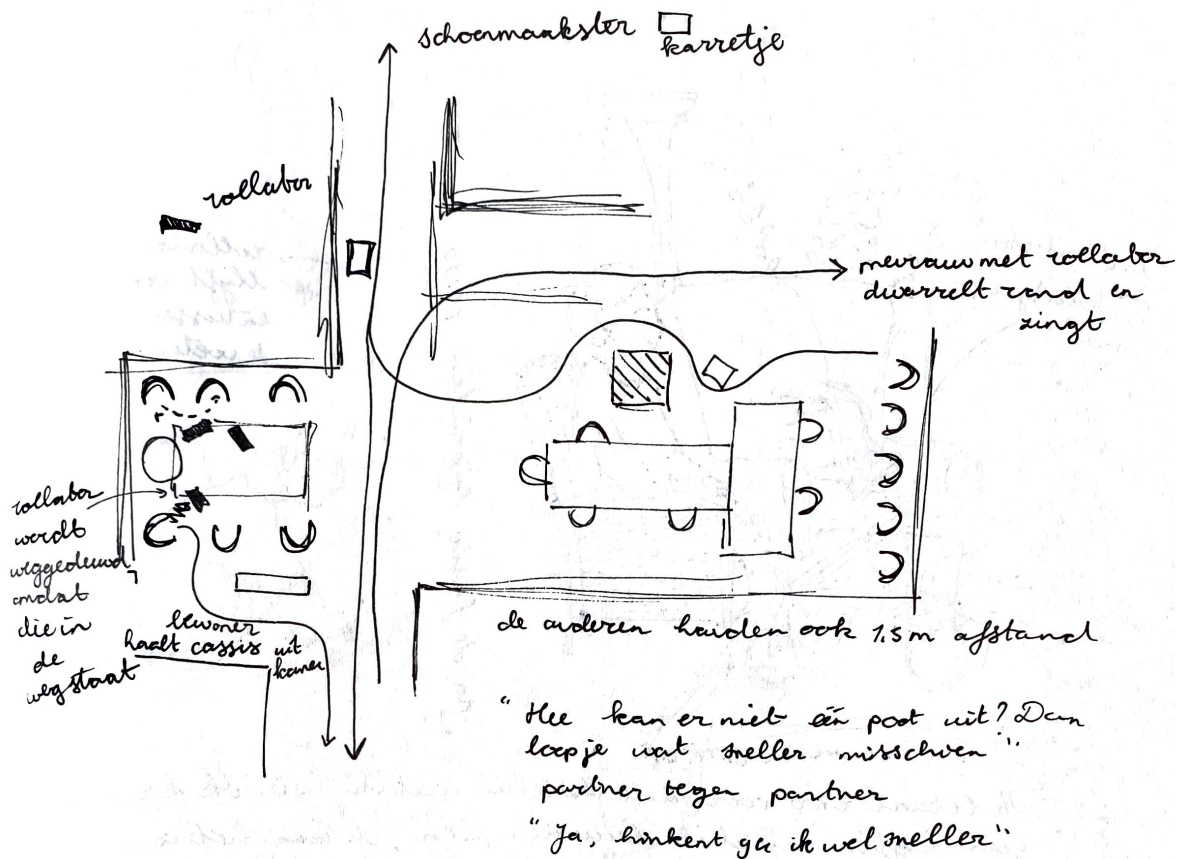 schoenmaakster
karretje
rollator
mevrouw met rollator
dwarrelt rond en
zingt
rollator
wordt
weggeduwd,
omdat
die in
de
weg staat
bewoner
haalt cassis uit
kamer
de ouderen houden ook 1,5 m afstand
"Hee kan er niet één poot uit? Dan
loop je wat sneller misschien"
partner tegen partner
"Ja, hinkent ga ik wel sneller"